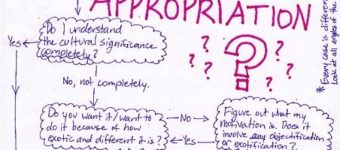 APPROPRIATION
Do I understand
the cultural significance
completely?
Yes
No, not completely.
Do you want it/want to
do it because of how
exotic and different it is?
No
Yes
Figure out what my
motivation is. Does it
involve any objectification
or exotification?
? ? ? ? ? ? ?
* Every case is different.
Look at all angles of the